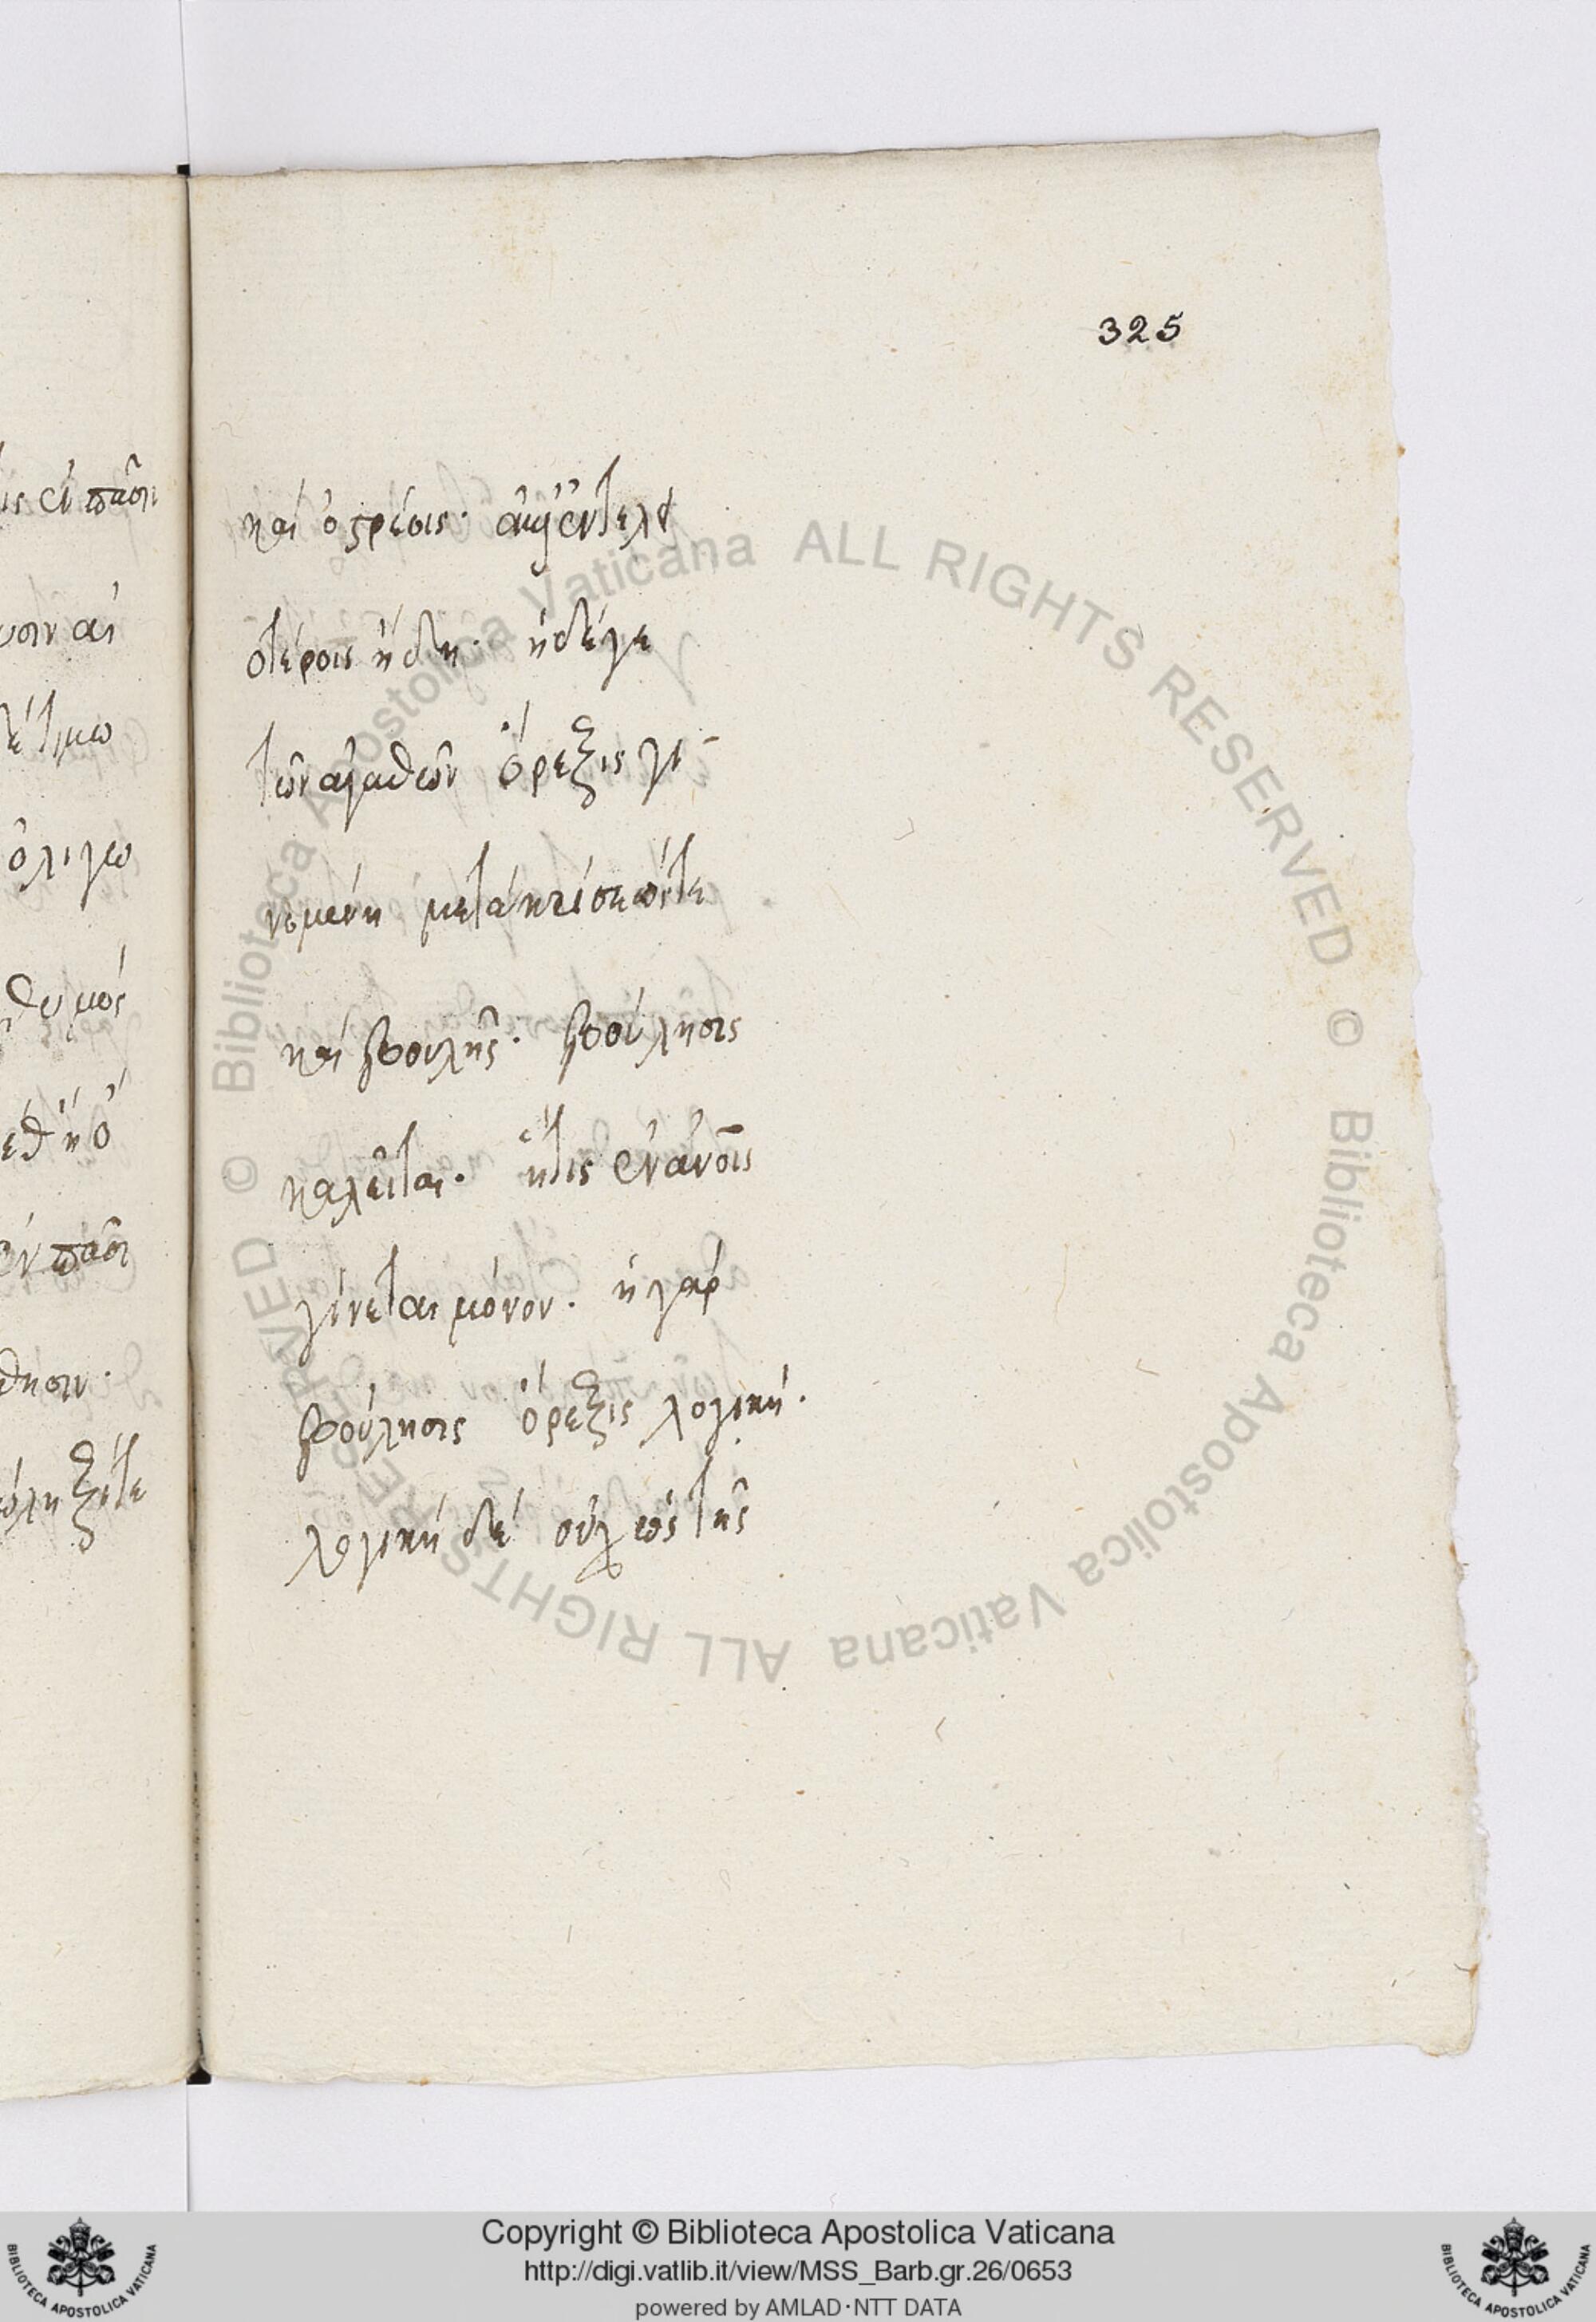 325
ις ἐν πᾶσι
καὶ ὁ ϛρέσις. ἀλλ' ἐντελε
υσιν αἱ
στέροις ἤδη. ἡ δέ γε
τῶν ἀγαθῶν ὄρεξις γι
ὀλίγω
νομένη μετὰ κρίσεώς τε
θυμός
καὶ βουλῆς. βούλησις
καλεῖται. ἥτις ἐν ἀνοῖς
ἐν πᾶσι
γίνεται μόνον. ἡ γὰρ
θησιν.
βούλησις ὄρεξις λογική.
λογικὴ δὲ οὐχ ὡς τῆς
© Biblioteca Apostolica Vaticana ALL RIGHTS RESERVED © Biblioteca Apostolica Vaticana ALL RIGHTS RESERVED
Copyright © Biblioteca Apostolica Vaticana
http://digi.vatlib.it/view/MSS_Barb.gr.26/0653
powered by AMLAD·NTT DATA
BIBLIOTECA APOSTOLICA VATICANA
BIBLIOTECA APOSTOLICA VATICANA